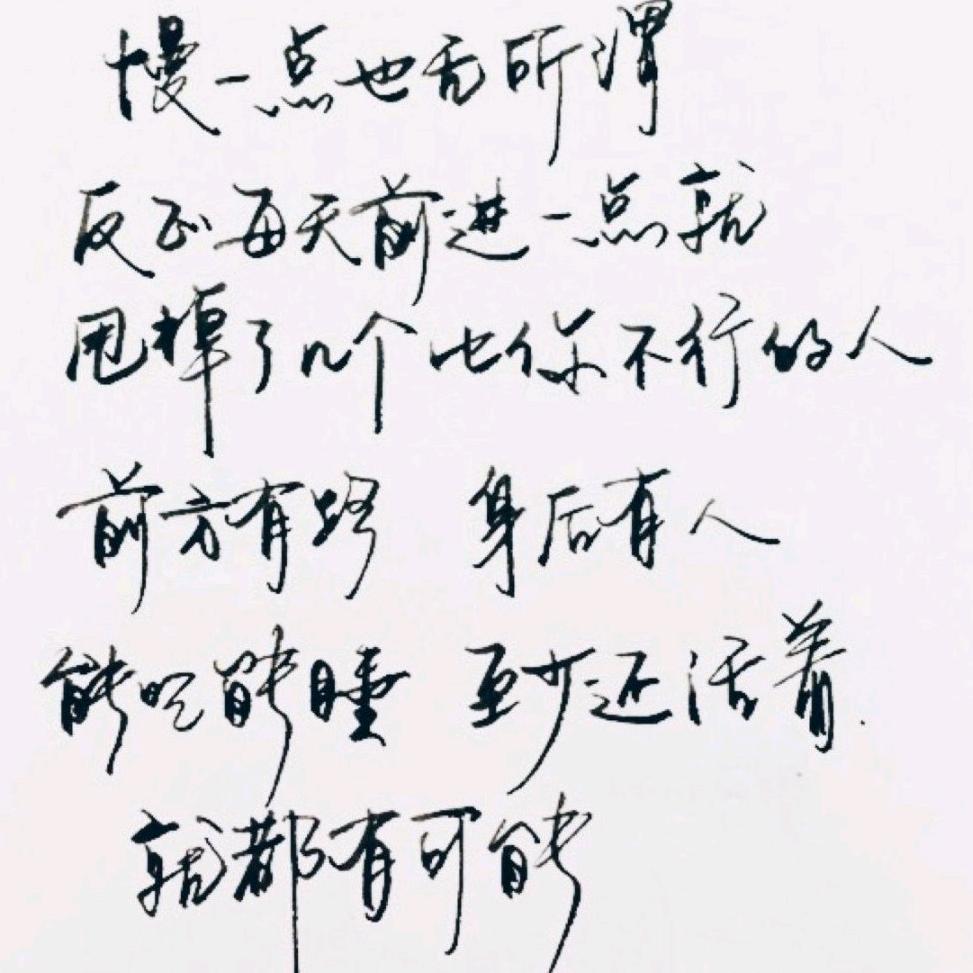 慢一点也无所谓
反正每天前进一点就
甩掉了几个比你不行的人
前方有路 身后有人
能吃能睡 至少还活着.
就都有可能